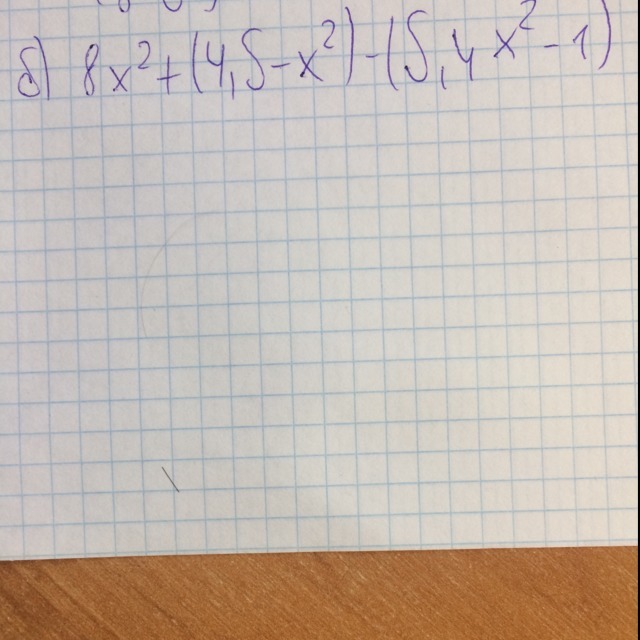 б) 8x²+(4,5-x²)-(5,4x²-1)